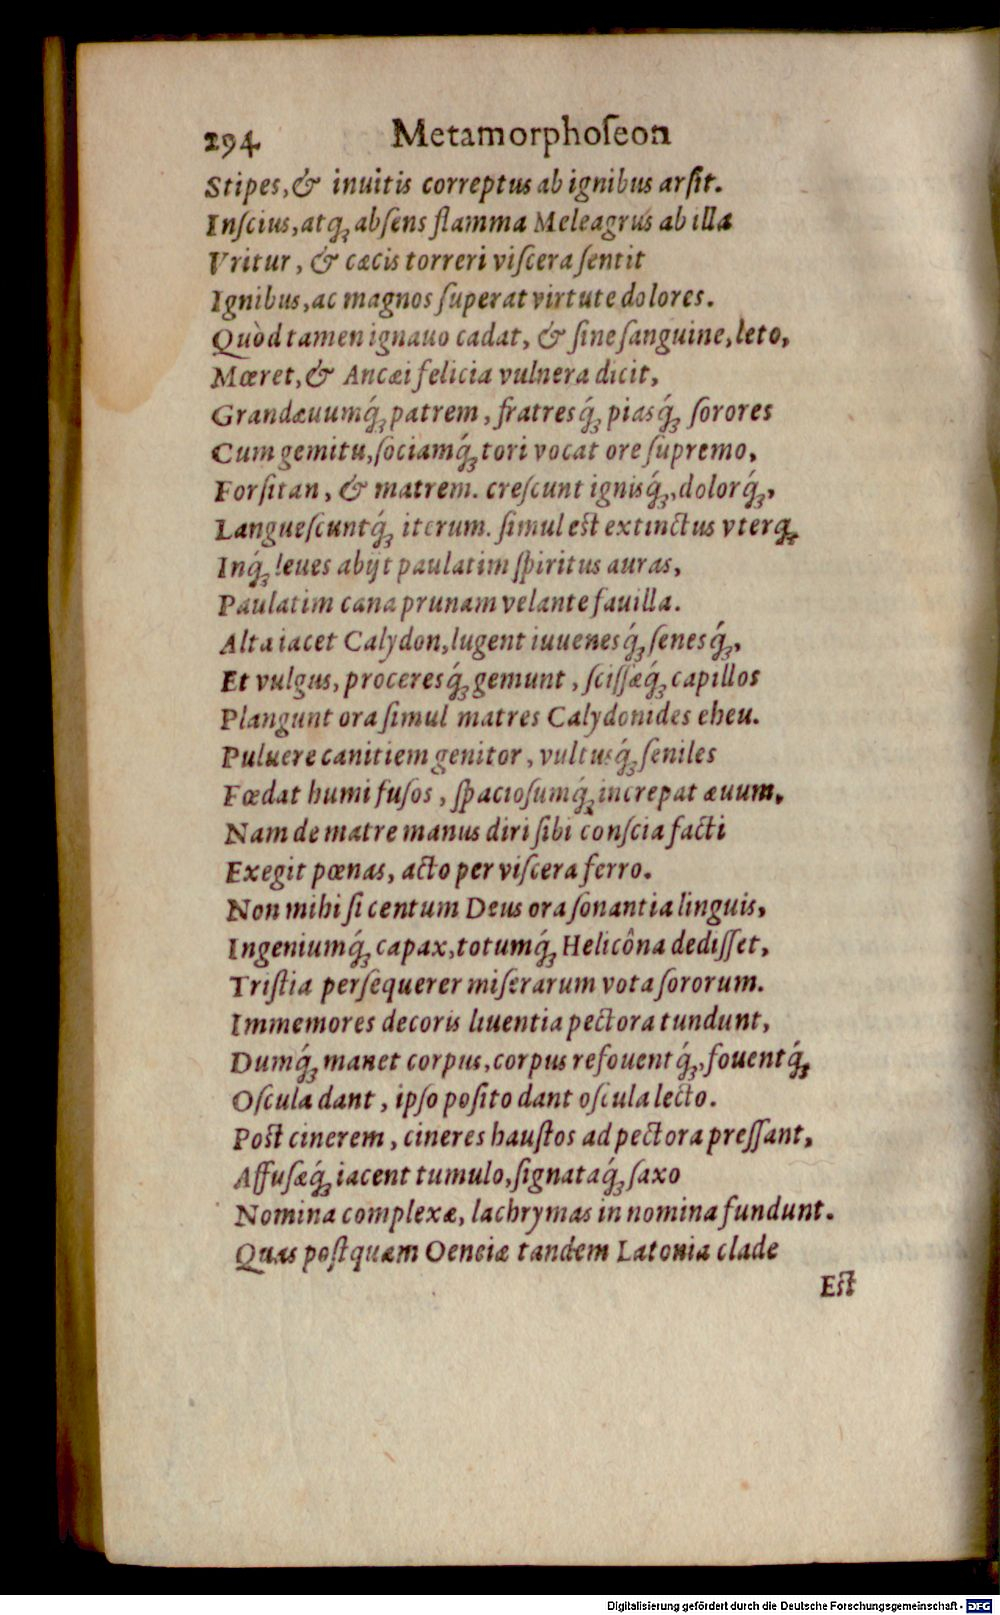 294 Metamorphoſeon
Stipes, & inuitis correptus ab ignibus arſit.
Inſcius, atq́ꝫ abſens flamma Meleagrus ab illa
Vritur, & cæcis torreri viſcera ſentit
Ignibus, ac magnos ſuperat virtute dolores.
Quòd tamen ignauo cadat, & ſine ſanguine, leto,
Mœret, & Ancæi felicia vulnera dicit,
Grandæuumq́ꝫ patrem, fratresq́ꝫ piasq́ꝫ ſorores
Cum gemitu, ſociamq́ꝫ tori vocat ore ſupremo,
Forſitan, & matrem. creſcunt ignisq́ꝫ, dolorq́ꝫ,
Langueſcuntq́ꝫ iterum. ſimul eſt extinctus vterqꝫ
Inq́ꝫ leues abijt paulatim ſpiritus auras,
Paulatim cana prunam velante fauilla.
Alta iacet Calydon, lugent iuuenesq́ꝫ ſenesq́ꝫ,
Et vulgus, proceresq́ꝫ gemunt, ſciſſæq́ꝫ capillos
Plangunt ora ſimul matres Calydonides eheu.
Puluere canitiem genitor, vultusq́ꝫ ſeniles
Fœdat humi fuſos, ſpacioſumq́ꝫ increpat æuum.
Nam de matre manus diri ſibi conſcia facti
Exegit pœnas, acto per viſcera ferro.
Non mihi ſi centum Deus ora ſonantia linguis,
Ingeniumq́ꝫ capax, totumq́ꝫ Helicôna dediſſet,
Triſtia perſequerer miſerarum vota ſororum.
Immemores decoris liuentia pectora tundunt,
Dumq́ꝫ manet corpus, corpus refouentq́ꝫ, fouentq́ꝫ
Oſcula dant, ipſo poſito dant oſcula lecto.
Poſt cinerem, cineres hauſtos ad pectora preſſant,
Affuſæq́ꝫ iacent tumulo, ſignataq́ꝫ ſaxo
Nomina complexæ, lachrymas in nomina fundunt.
Quas poſtquam Oeneiæ tandem Latonia clade
Eſt
Digitalisierung gefördert durch die Deutsche Forschungsgemeinschaft - DFG